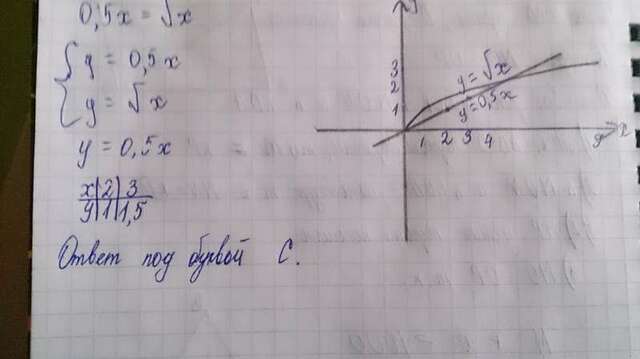 0,5x = √x
y = 0,5x
y = √x
y = 0,5x
x | 2 | 3
y | 1 | 1,5
Ответ под буквой С.
y
3
2
1
y = √x
y = 0,5x
1 2 3 4 9 x